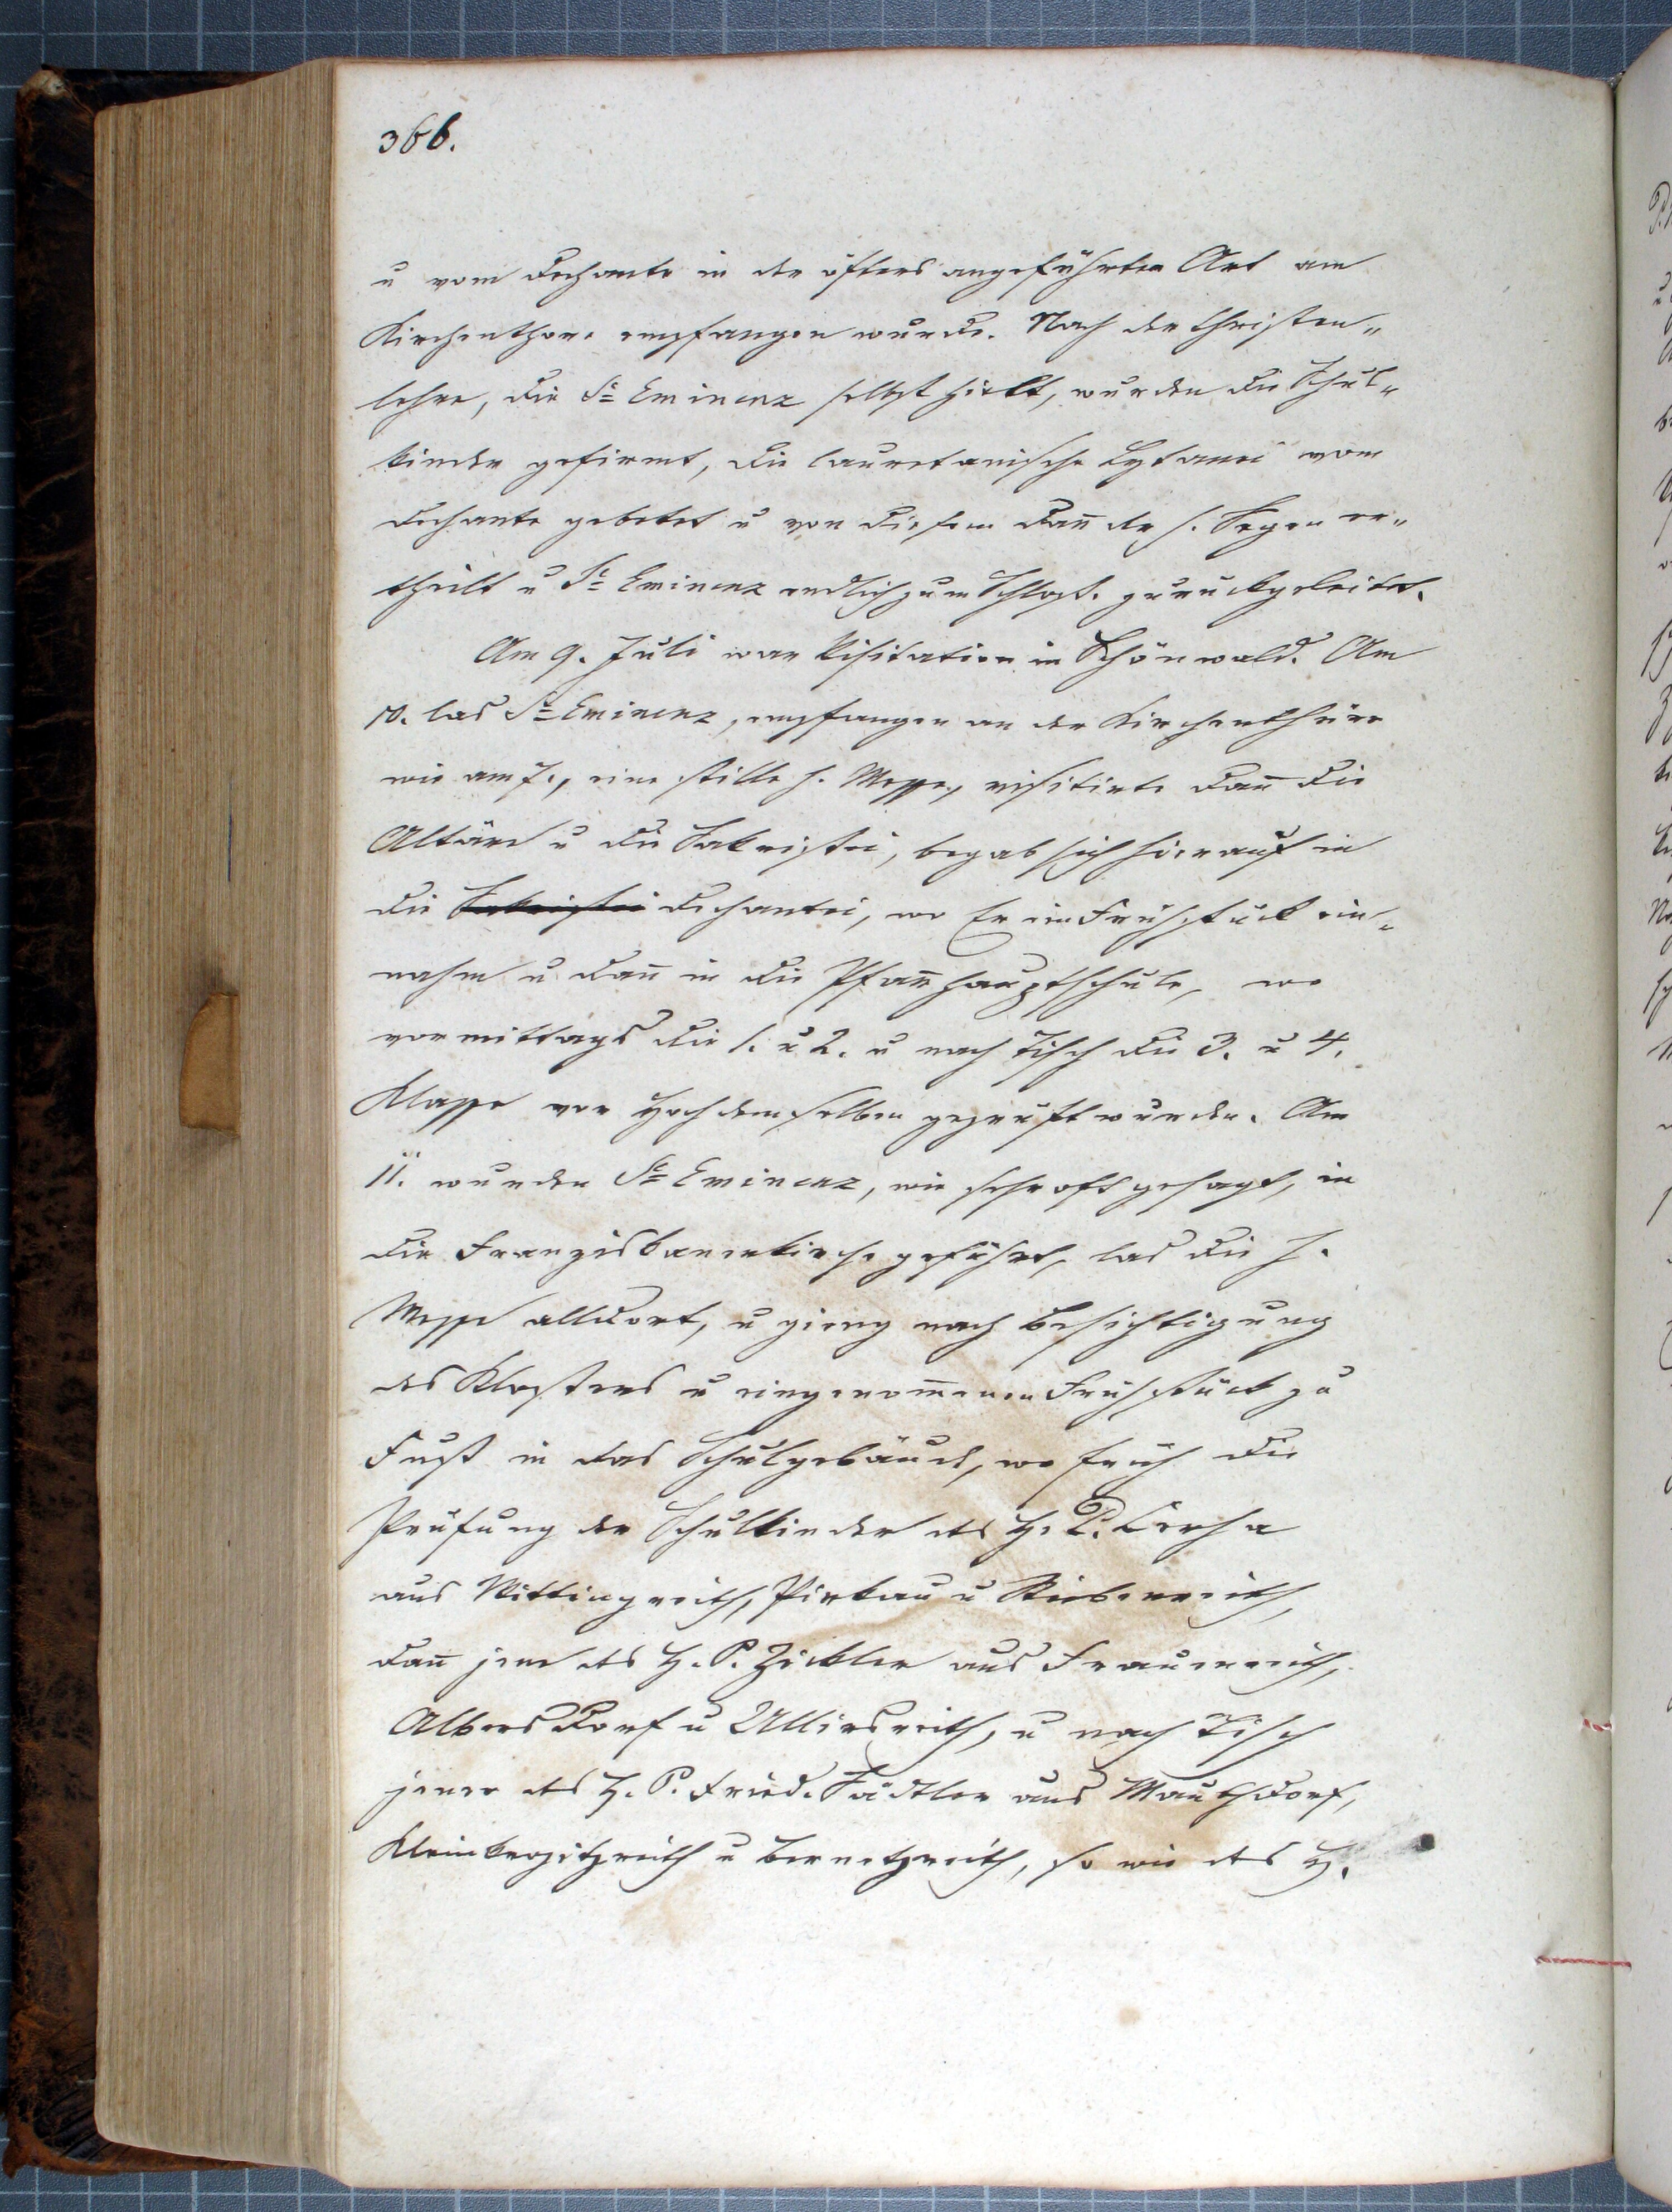 366.
u vom Dechante in der öfters angeführten Art am
Kirchenthore empfangen wurde. Nach der Christen„
lehre, die Se Eminenz selbst hielt, wurden die Schul„
kinder gefirmt, die lauretanische Lytanei vom
Dechante gebetet u von diesem dann der h. Segen er„
theilt u Se Eminenz endlich zum Schloße zurückgeleitet.
Am 9. Juli war Visitation in Schönwald. Am
10. las Se Eminenz, empfangen an der Kirchenthüre
wie am 7., eine stille h. Messe, visitirte dann die
Altäre u die Sakristei, begab sich hierauf in
die Sakristei Dechantei, wo Er ein Frühstück ein„
nahm u dann in die Pfarrhauptschule, wo
vormittags die 1. u 2. u nach Tisch die 3. u 4.
Klasse vor Hochdemselben geprüft wurden. Am
11. wurden Se Eminenz, wie schon oft gesagt, in
die Franziskanerkirche geführt, las die h.
Messe alldort, u gieng nach Besichtigung
des Klosters u eingenommenen Frühstück zu
Fuß in das Schulgebäude, wo früh die
Prüfung der Schulkinder des H. P. Lerch a
aus Wittingreith, Pirkau u
dann jene des H. P. Zickler aus Frauenreith,
Albersdorf u Ullirsreith, u nach Tisch
jener des H. P. Fried. Sädtler aus Mauthdorf,
u Bernetzreith, so wie des H.